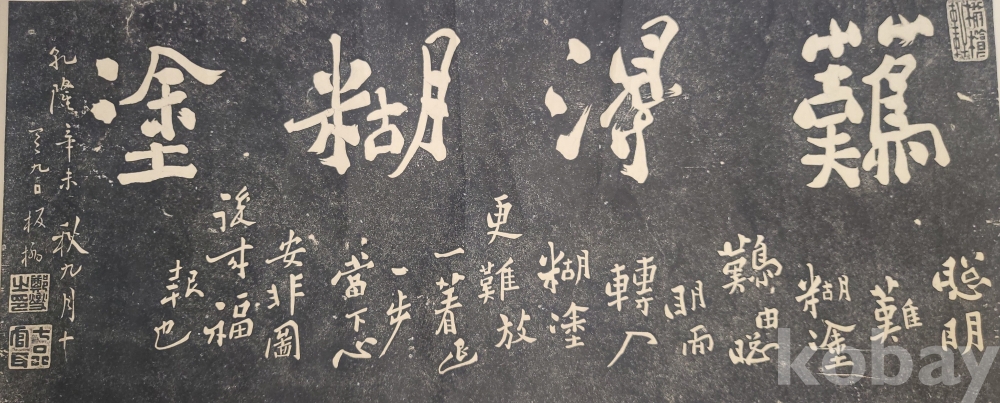 難得糊塗
聰明
難
糊塗
難由聰
明而
轉入
糊塗
更難放
一着退
一步
當下心
安非圖
後來福
報也
乾隆辛未秋九月十
有九日板橋
鄭燮之印
七品官耳
kobay